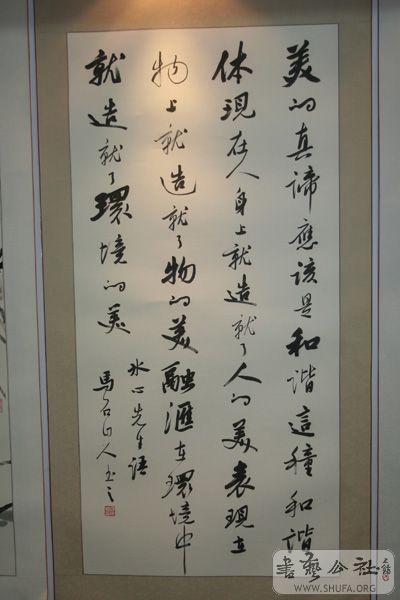 美的真谛應该是和谐這種和谐
体現在人身上就造就了人的美表現在
物上就造就了物的美融滙在環境中
就造就了環境的美
冰心先生语
馬石山人书之
書藝公社
WWW.SHUFA.ORG